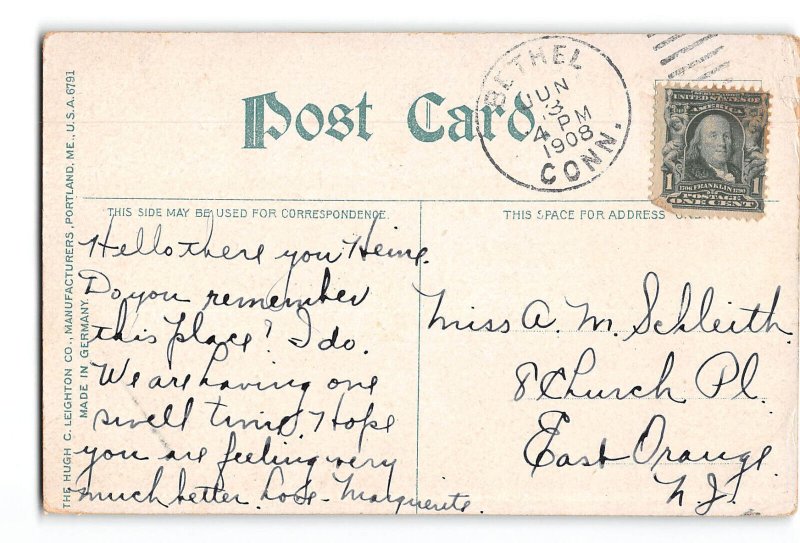 Post Card
BETHEL
JUN
3
4 PM
1908
CONN.
UNITED STATES OF
AMERICA
1706 FRANKLIN 1790
1 1
POSTAGE
ONE CENT
THIS SIDE MAY BE USED FOR CORRESPONDENCE.
THIS SPACE FOR ADDRESS ONLY
THE HUGH C. LEIGHTON CO., MANUFACTURERS, PORTLAND, ME., U.S.A. 6791
MADE IN GERMANY.
Hello there you Heine.
Do you remember
this place? I do.
We are having one
swell time. Hope
you are feeling very
much better. Love - Marguerite.
Miss A. M. Schleith
8 Church Pl.
East Orange
N.J.